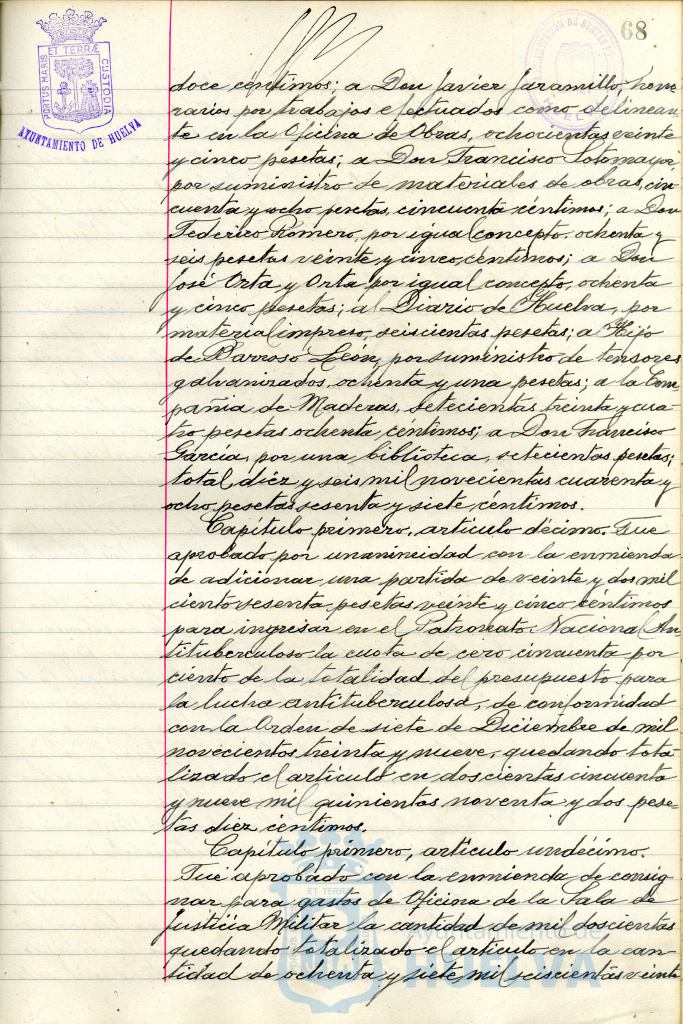 68
PORTUS MARIS ET TERRÆ CUSTODIA
AYUNTAMIENTO DE HUELVA
doce céntimos; a Don Javier Jaramillo, hono-
rarios por trabajos efectuados como delinean-
te en la Oficina de Obras, ochocientas veinte
y cinco pesetas; a Don Francisco Sotomayor
por suministro de materiales de obras, cin-
cuenta y ocho pesetas, cincuenta céntimos; a Don
Federico Romero, por igual concepto, ochenta y
seis pesetas veinte y cinco céntimos; a Don
José Orta y Orta por igual concepto, ochenta
y cinco pesetas; al Diario de Huelva, por
material impreso, seiscientas pesetas; a Hijo
de Barroso León, por suministro de tensores
galvanizados, ochenta y una pesetas; a la Com-
pañia de Maderas, setecientas treinta y cua-
tro pesetas ochenta céntimos; a Don Francisco
García, por una biblioteca, setecientas pesetas;
total diez y seis mil novecientas cuarenta y
ocho pesetas sesenta y siete céntimos.
Capítulo primero, artículo décimo. Fue
aprobado por unanimidad con la enmienda
de adicionar una partida de veinte y dos mil
ciento sesenta pesetas veinte y cinco céntimos
para ingresar en el Patronato Nacional An-
tituberculoso la cuota de cero cincuenta por
ciento de la totalidad del presupuesto para
la lucha antituberculosa, de conformidad
con la Orden de siete de Diciembre de mil
novecientos treinta y nueve, quedando tota-
lizado el artículo en doscientas cincuenta
y nueve mil quinientas noventa y dos pese-
tas diez céntimos.
Capítulo primero, artículo undécimo.
Fue aprobado con la enmienda de consig-
nar para gastos de Oficina de la Sala de
Justicia Militar la cantidad de mil doscientas
quedando totalizado el artículo en la can-
tidad de ochenta y siete mil seiscientas veinte
ET TERRÆ
Ayuntamiento de
HUELVA